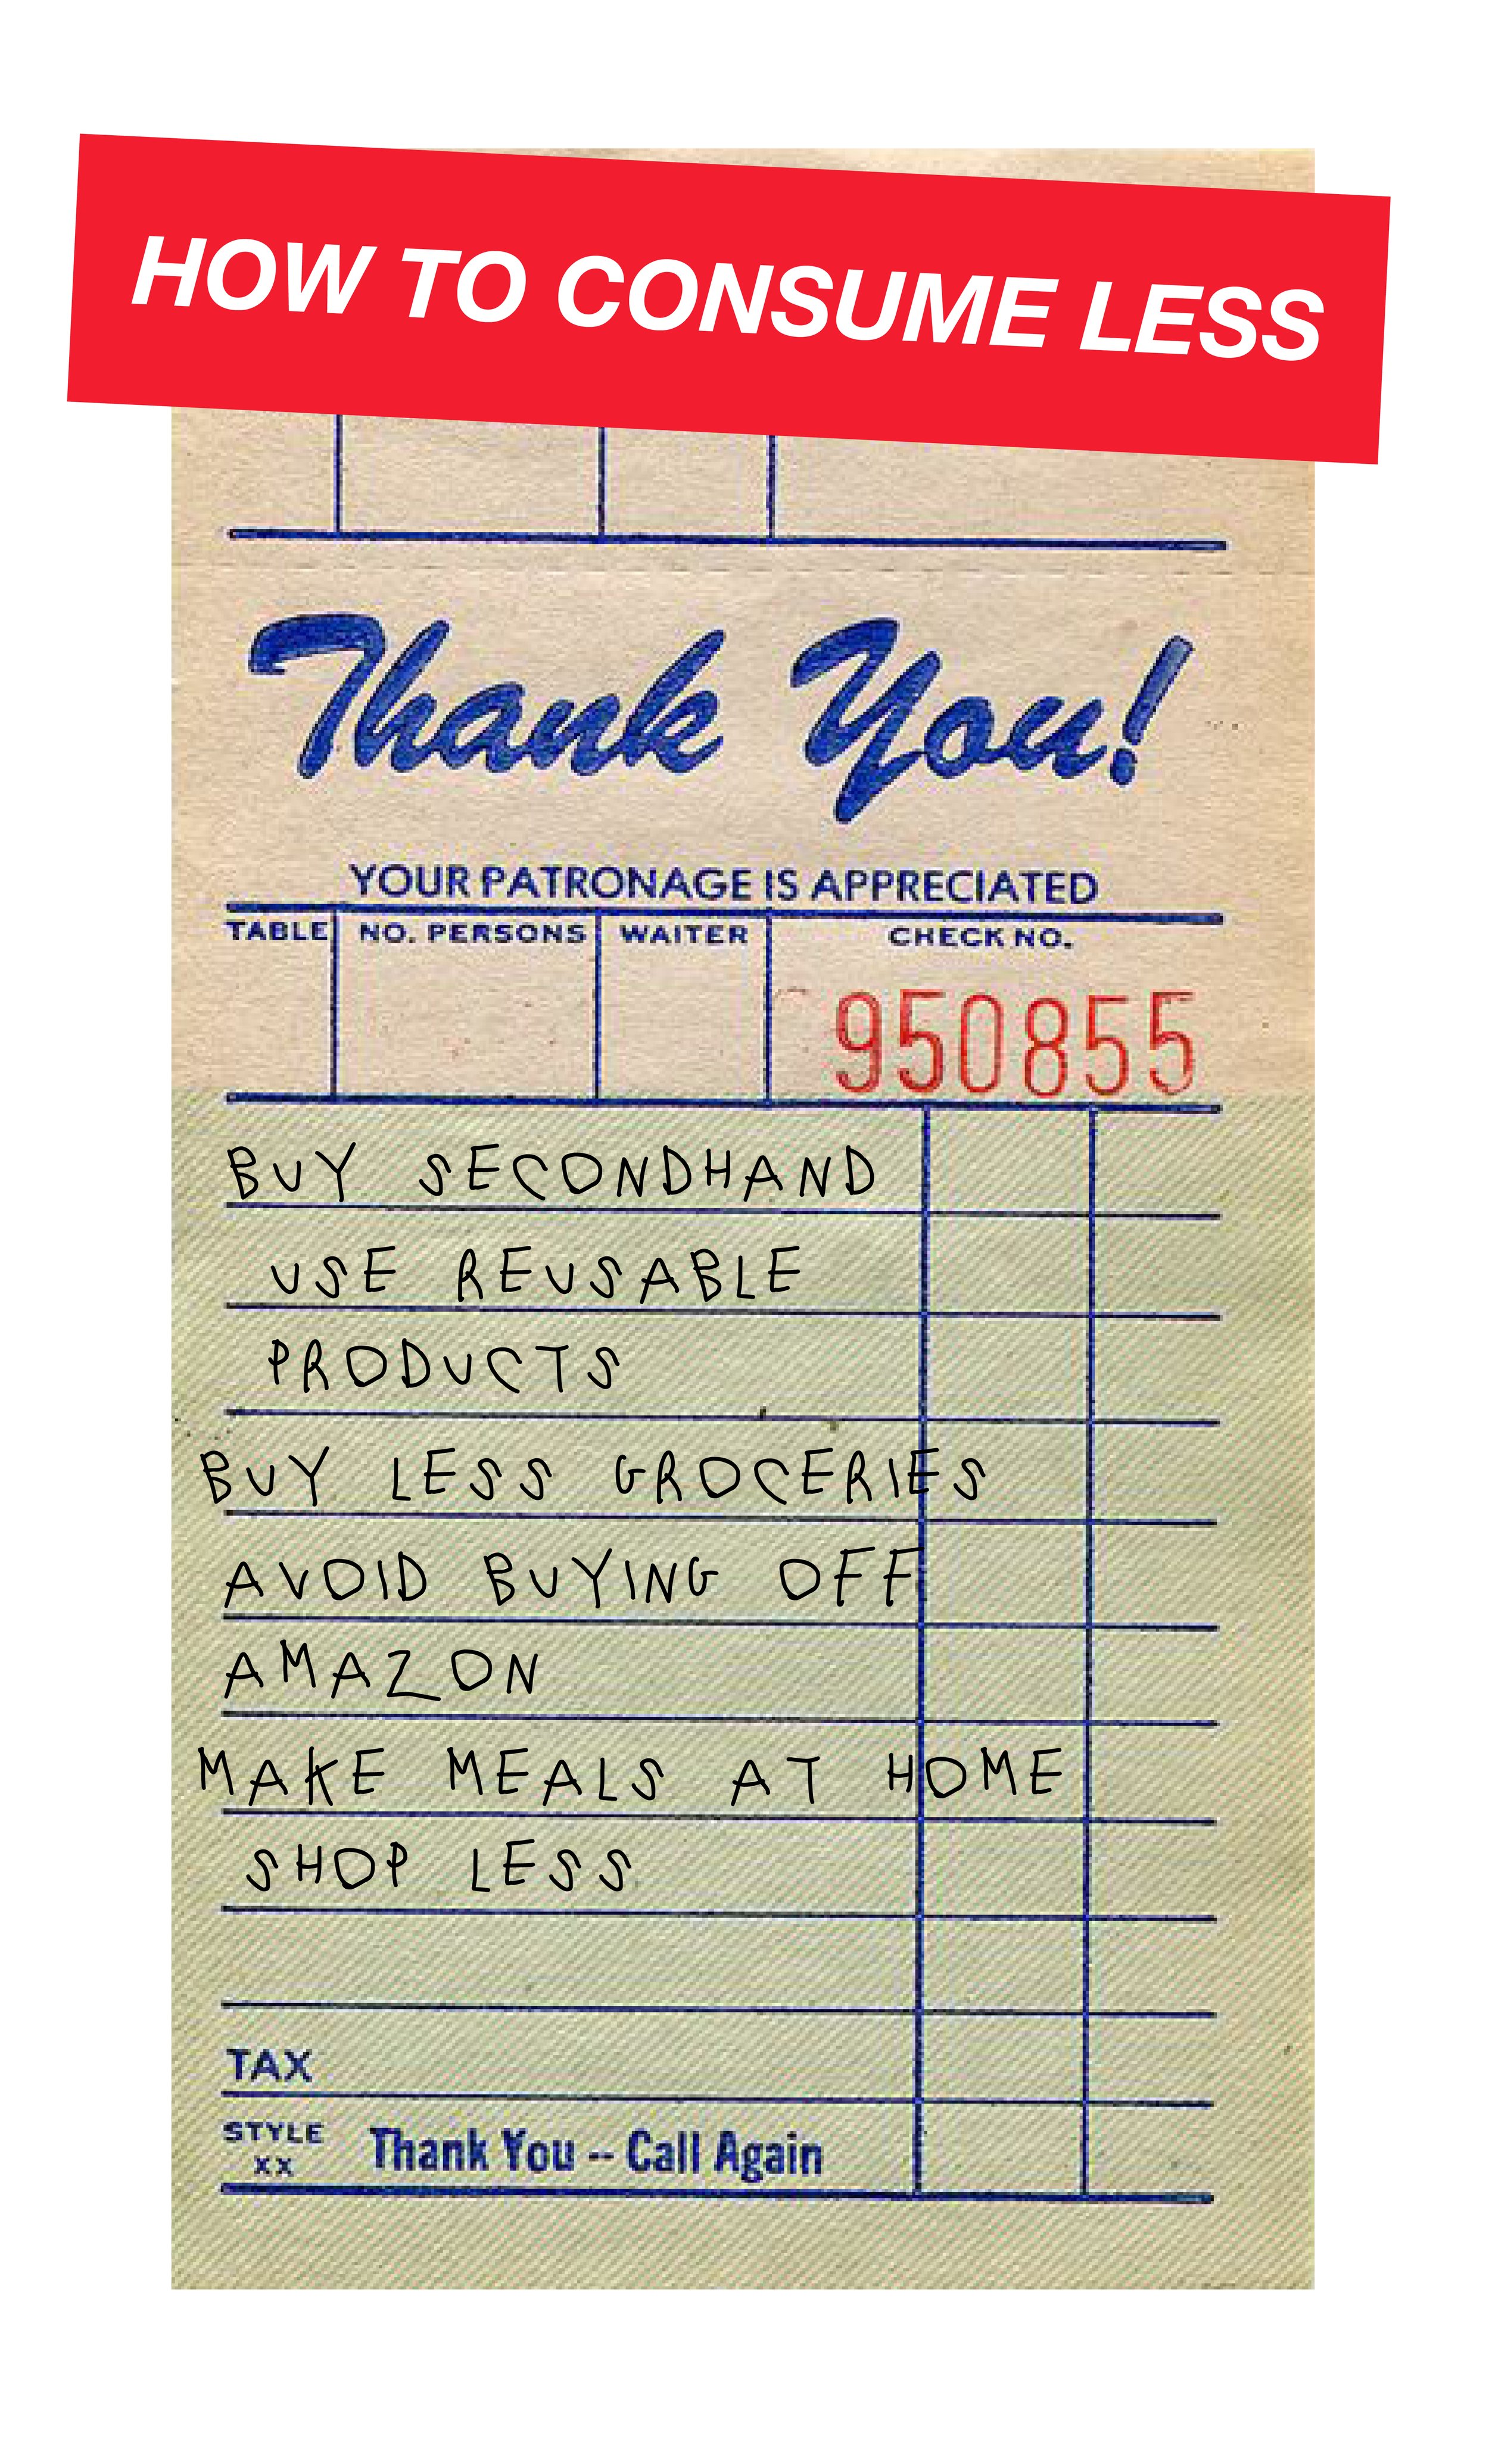 HOW TO CONSUME LESS
Thank You!
YOUR PATRONAGE IS APPRECIATED
TABLE NO. PERSONS WAITER CHECK NO.
950855
BUY SECONDHAND
USE REUSABLE
PRODUCTS
BUY LESS GROCERIES
AVOID BUYING OFF
AMAZON
MAKE MEALS AT HOME
SHOP LESS
TAX
STYLE
XX
Thank You -- Call Again